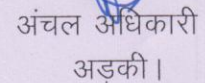 अंचल अधिकारी
अड़की।